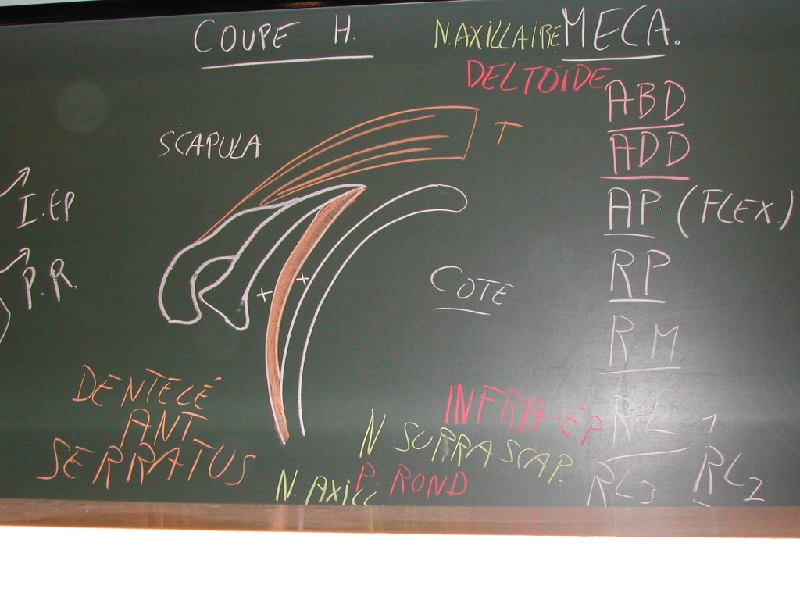 COUPE H.
N.AXILLAIRE MECA.
DELTOIDE
ABD
ADD
AP (FLEX.)
RP
RM
RL 1
RL3 RL2
SCAPULA
T
I.EP
P.R.
COTE
DENTELÉ
ANT
SERRATUS
INFRA-EP
N SUPRASCAP.
N AXILL P. ROND